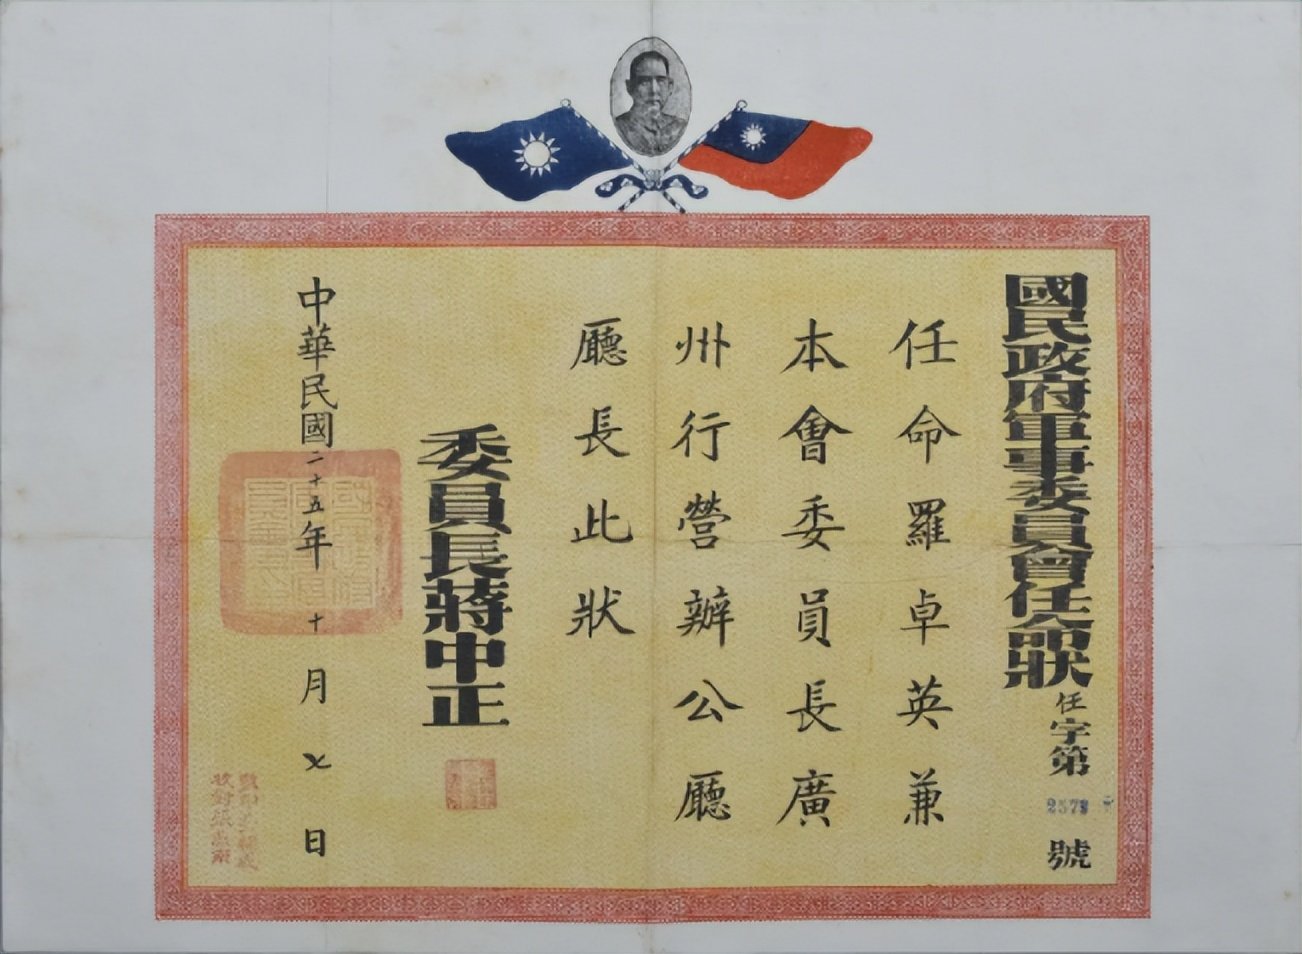 國民政府軍事委員會任命狀
任字第2579號
任命羅卓英兼
本會委員長廣
州行營辦公廳
廳長此狀
委員長蔣中正
中華民國二十五年十月七日